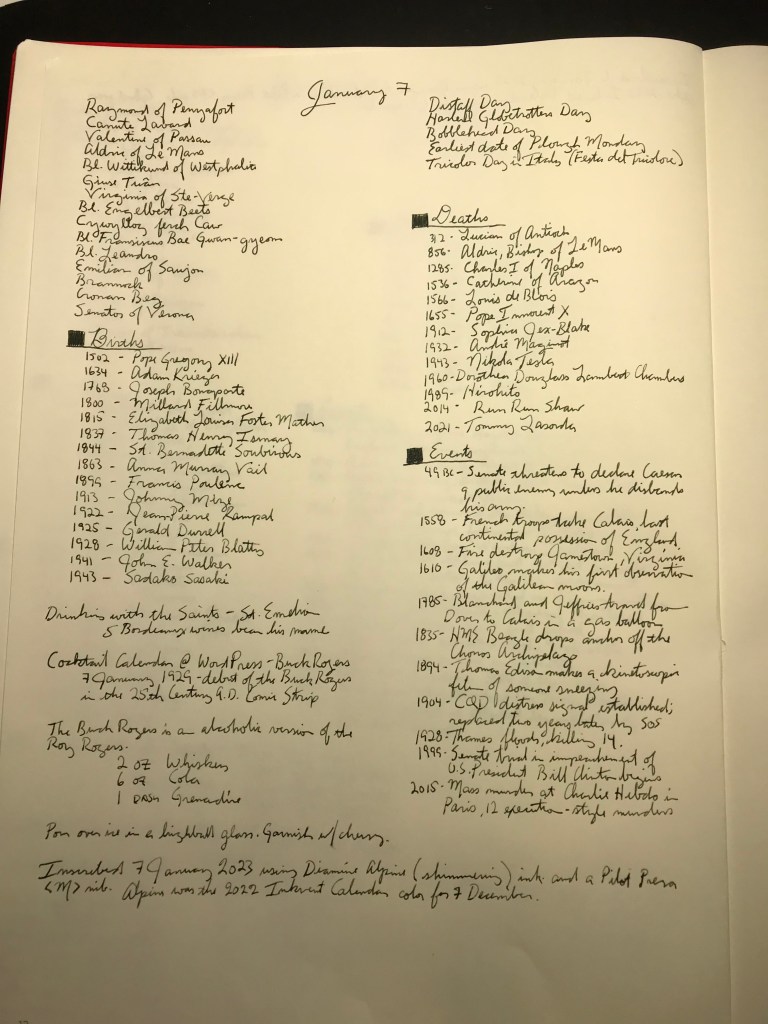 January 7
Raymond of Penyafort
Canute Lavard
Valentine of Passau
Aldric of Le Mans
Bl. Wittikund of Westphalia
Giuse Tuân
Virginia of Ste-Verge
Bl. Engelbert Beets
Cywyllog ferch Caw
Bl. Franciscus Bae Gwan-gyeom
Bl. Leandro
Emilian of Saujon
Brannock
Cronan Beg
Senator of Verona
Births
1502 - Pope Gregory XIII
1634 - Adam Krieger
1768 - Joseph Bonaparte
1800 - Millard Fillmore
1815 - Elizabeth Louisa Foster Mather
1837 - Thomas Henry Ismay
1844 - St. Bernadette Soubirous
1863 - Anna Murray Vail
1899 - Francis Poulenc
1913 - Johnny Mize
1922 - Jean-Pierre Rampal
1925 - Gerald Durrell
1928 - William Peter Blatty
1941 - John E. Walker
1943 - Sadako Sasaki
Drinking with the Saints - St. Emelion
5 Bordeaux wines bear his name
Cocktail Calendar @ WordPress - Buck Rogers
7 January 1929 - debut of the Buck Rogers
in the 25th Century A.D. Comic Strip
The Buck Rogers is an alcoholic version of the
Roy Rogers.
2 oz Whiskey
6 oz Cola
1 DASH Grenadine
Pour over ice in a highball glass. Garnish w/ cherry.
Distaff Day
Harlem Globetrotters Day
Bobblehead Day
Earliest date of Plough Monday
Tricolor Day in Italy (Festa del Tricolore)
Deaths
312 - Lucian of Antioch
856 - Aldric, Bishop of Le Mans
1285 - Charles I of Naples
1536 - Catherine of Aragon
1566 - Louis de Blois
1655 - Pope Innocent X
1912 - Sophia Jex-Blake
1932 - André Maginot
1943 - Nikola Tesla
1960 - Dorothea Douglass Lambert Chambers
1989 - Hirohito
2014 - Run Run Shaw
2021 - Tommy Lasorda
Events
49 BC - Senate threatens to declare Caesar
a public enemy unless he disbands
his army.
1558 - French troops take Calais, last
continental possession of England.
1608 - Fire destroys Jamestown, Virginia
1610 - Galileo makes his first observation
of the Galilean moons.
1785 - Blanchard and Jeffries travel from
Dover to Calais in a gas balloon
1835 - HMS Beagle drops anchor off the
Chonos Archipelago
1894 - Thomas Edison makes a kinetoscopic
film of someone sneezing
1904 - CQD distress signal established;
replaced two years later by SOS
1928 - Thames floods, killing 14.
1999 - Senate trial in impeachment of
U.S. President Bill Clinton begins
2015 - Mass murder at Charlie Hebdo in
Paris, 12 execution-style murders
Inscribed 7 January 2023 using Diamine Alpine (shimmering) ink and a Pilot Prera
<M> nib. Alpine was the 2022 Inkvent Calendar color for 7 December.